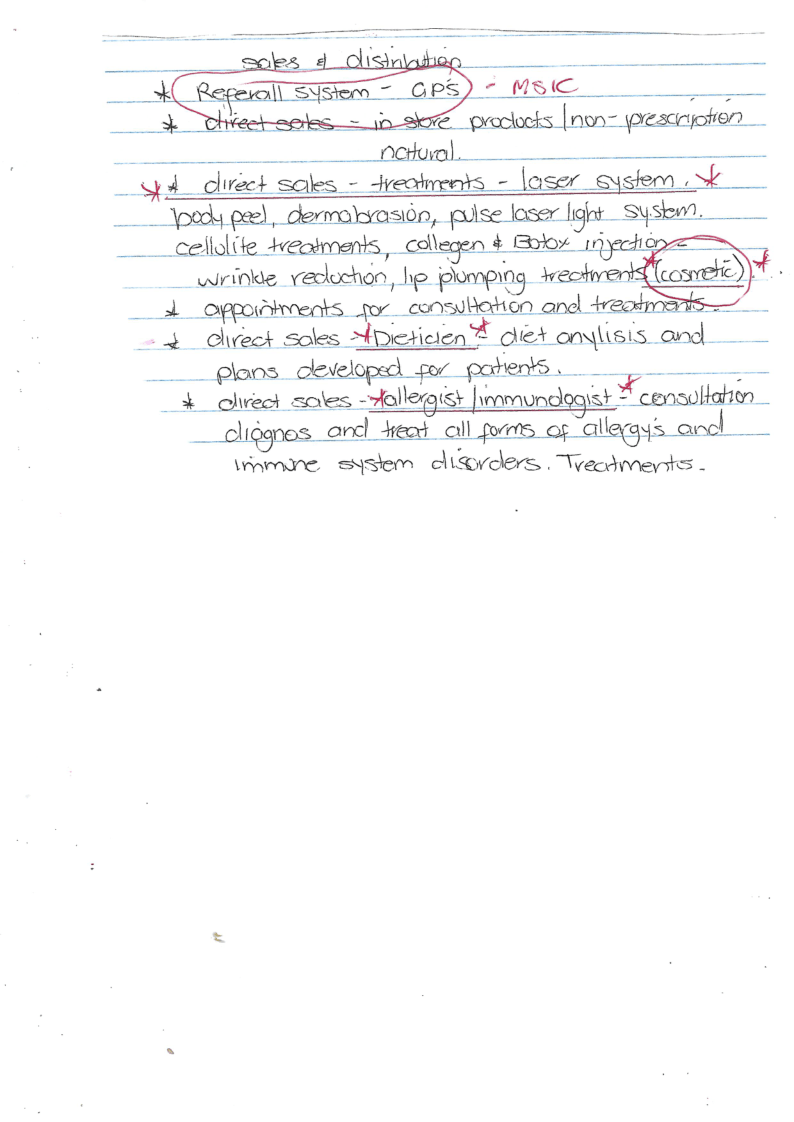 sales & distribution
* Referall system - GP's - MSIC
* direct sales - in store products / non-prescription
natural.
* * direct sales - treatments - laser system. *
body peel, dermabrasion, pulse laser light system.
cellulite treatments, collegen & Botox injection -
wrinkle reduction, lip plumping treatments * (cosmetic). *
* appointments for consultation and treatments.
* direct sales - * Dieticien * - diet anylisis and
plans developed for patients.
* direct sales - * allergist / immunologist - * consultation
diagnos and treat all forms of allergy's and
immune system disorders. Treatments.